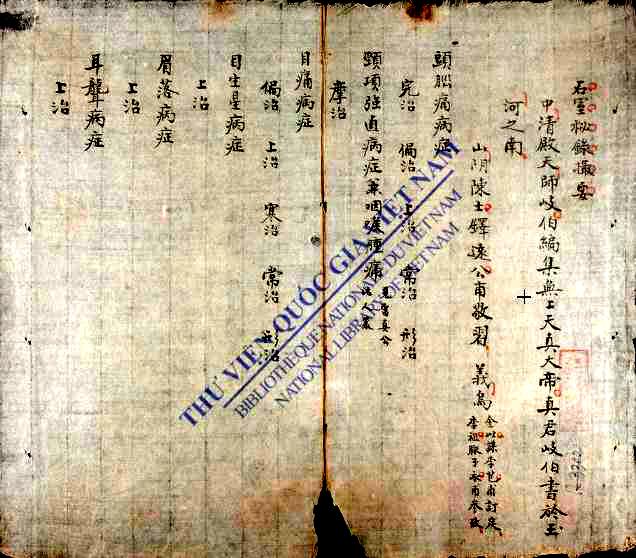 石室秘錄撮要
中清殿天師岐伯編集無上天真大帝真君岐伯書於玉
河之南
山陰陳士鐸遠公甫敬習 義烏
金以謀孝芑甫訂定
李祖詠子永甫參攷
頭脳痛病症
完治 偏治 上治 常治 形治
頸項強直病症兼咽喉腫痛
摩治
目痛病症
偏治 上治 寒治 常治 形治
目生星病症
上治
眉落病症
上治
耳聾病症
上治
THƯ VIỆN QUỐC GIA VIỆT NAM
BIBLIOTHÈQUE NATIONALE DU VIETNAM
NATIONAL LIBRARY OF VIETNAM